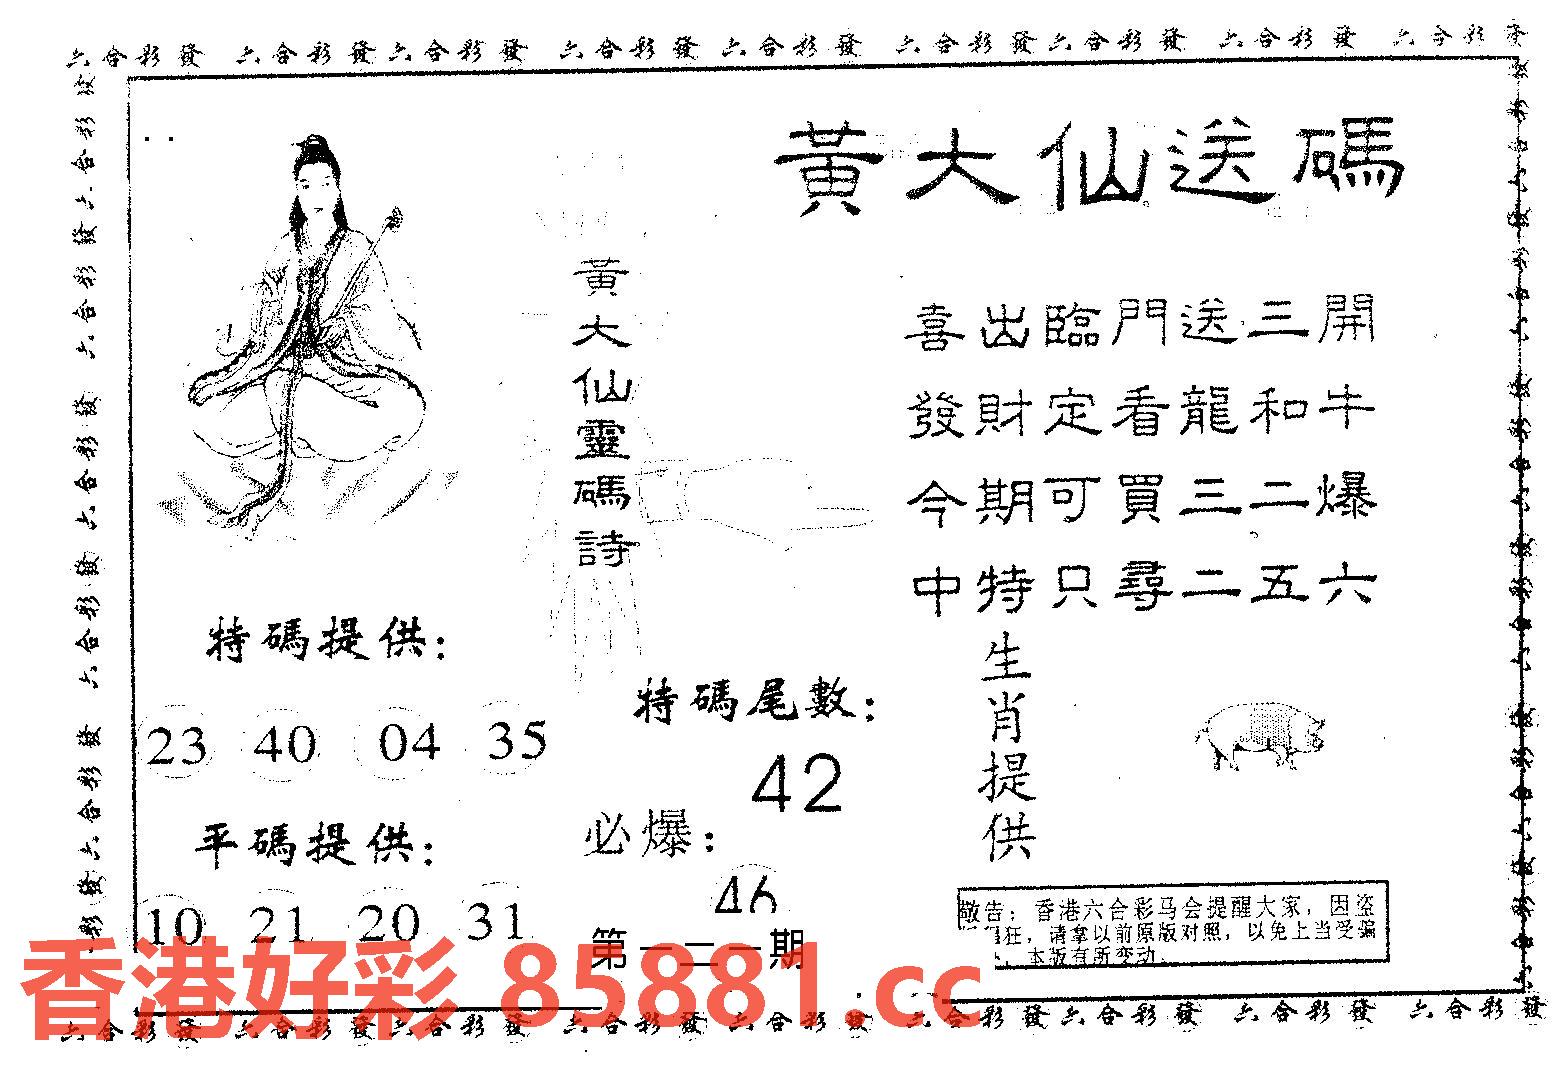 六合彩發 六合彩發六合彩發 六合彩發 六合彩發 六合彩發六合彩發 六合彩發 六合彩發
黃大仙送碼
黃大仙靈碼詩
喜出臨門送三開
發財定看龍和牛
今期可買三二爆
中特只尋二五六
特碼提供：
23 40 04 35
平碼提供：
10 21 20 31
特碼尾數：
42
必爆：
46
第一二一期
生肖提供
敬告：香港六合彩马会提醒大家，因盗
狂，请拿以前原版对照，以免上当受骗
，本版有所变动.
香港好彩 85881.cc
六合彩發 六合彩發六合彩發 六合彩發 六合彩發 六合彩發六合彩發 六合彩發 六合彩發